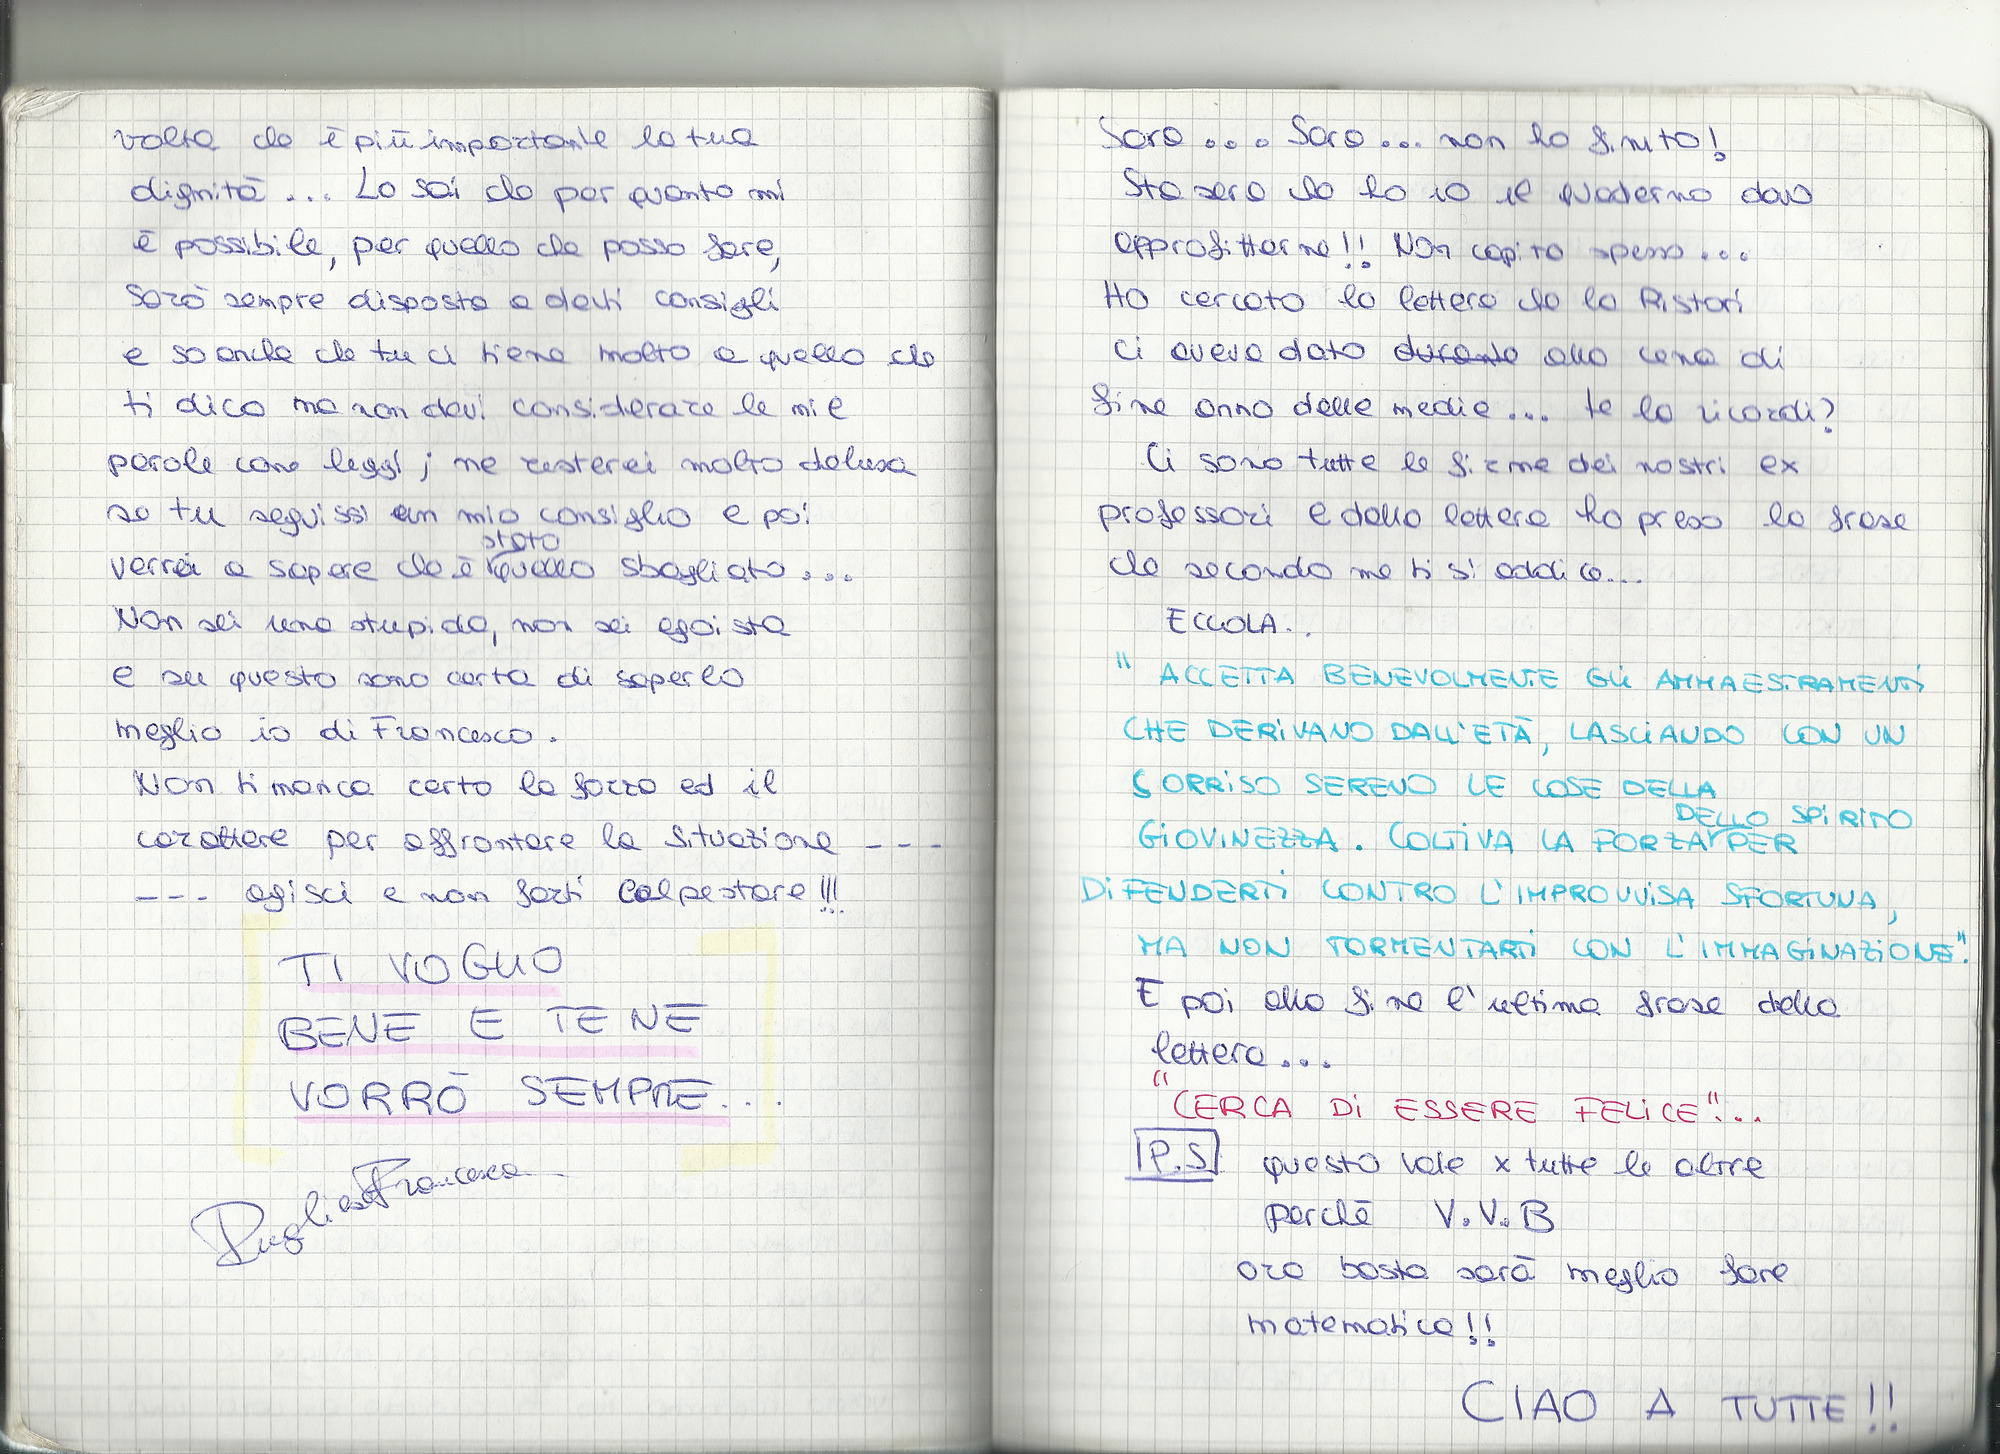 volta che è più importante la tua
dignità... Lo sai che per quanto mi
è possibile, per quello che posso fare,
sarò sempre disposta a darti consigli
e so anche che tu ci tiene molto a quello che
ti dico ma non devi considerare le mie
parole come leggi; ne resterei molto delusa
se tu seguissi un mio consiglio e poi
stato
verrei a sapere che è quello sbagliato...
Non sei una stupida, non sei egoista
e su questo sono certa di saperlo
meglio io di Francesco.
Non ti manca certo la forza ed il
carattere per affrontare la situazione ---
--- agisci e non farti calpestare!!!
TI VOGLIO
BENE E TE NE
VORRÒ SEMPRE...
Pugliese Francesca
Sara... Sara... non ho finito!
Stasera che ho io il quaderno devo
approfittarne!! Non capita spesso...
Ho cercato la lettera che la Ristori
ci aveva dato durante alla cena di
fine anno delle medie... te la ricordi?
Ci sono tutte le firme dei nostri ex
professori e dalla lettera ho preso la frase
che secondo me ti si addice...
ECCOLA..
"ACCETTA BENEVOLMENTE GLI AMMAESTRAMENTI
CHE DERIVANO DALL'ETÀ, LASCIANDO CON UN
SORRISO SERENO LE COSE DELLA
DELLO SPIRITO
GIOVINEZZA. COLTIVA LA FORZA PER
DIFENDERTI CONTRO L'IMPROVVISA SFORTUNA,
MA NON TORMENTARTI CON L'IMMAGINAZIONE".
E poi alla fine l'ultima frase della
lettera...
"CERCA DI ESSERE FELICE"...
P.S questo vale x tutte le altre
perchè V.V.B
ora basta sarà meglio fare
matematica!!
CIAO A TUTTE!!